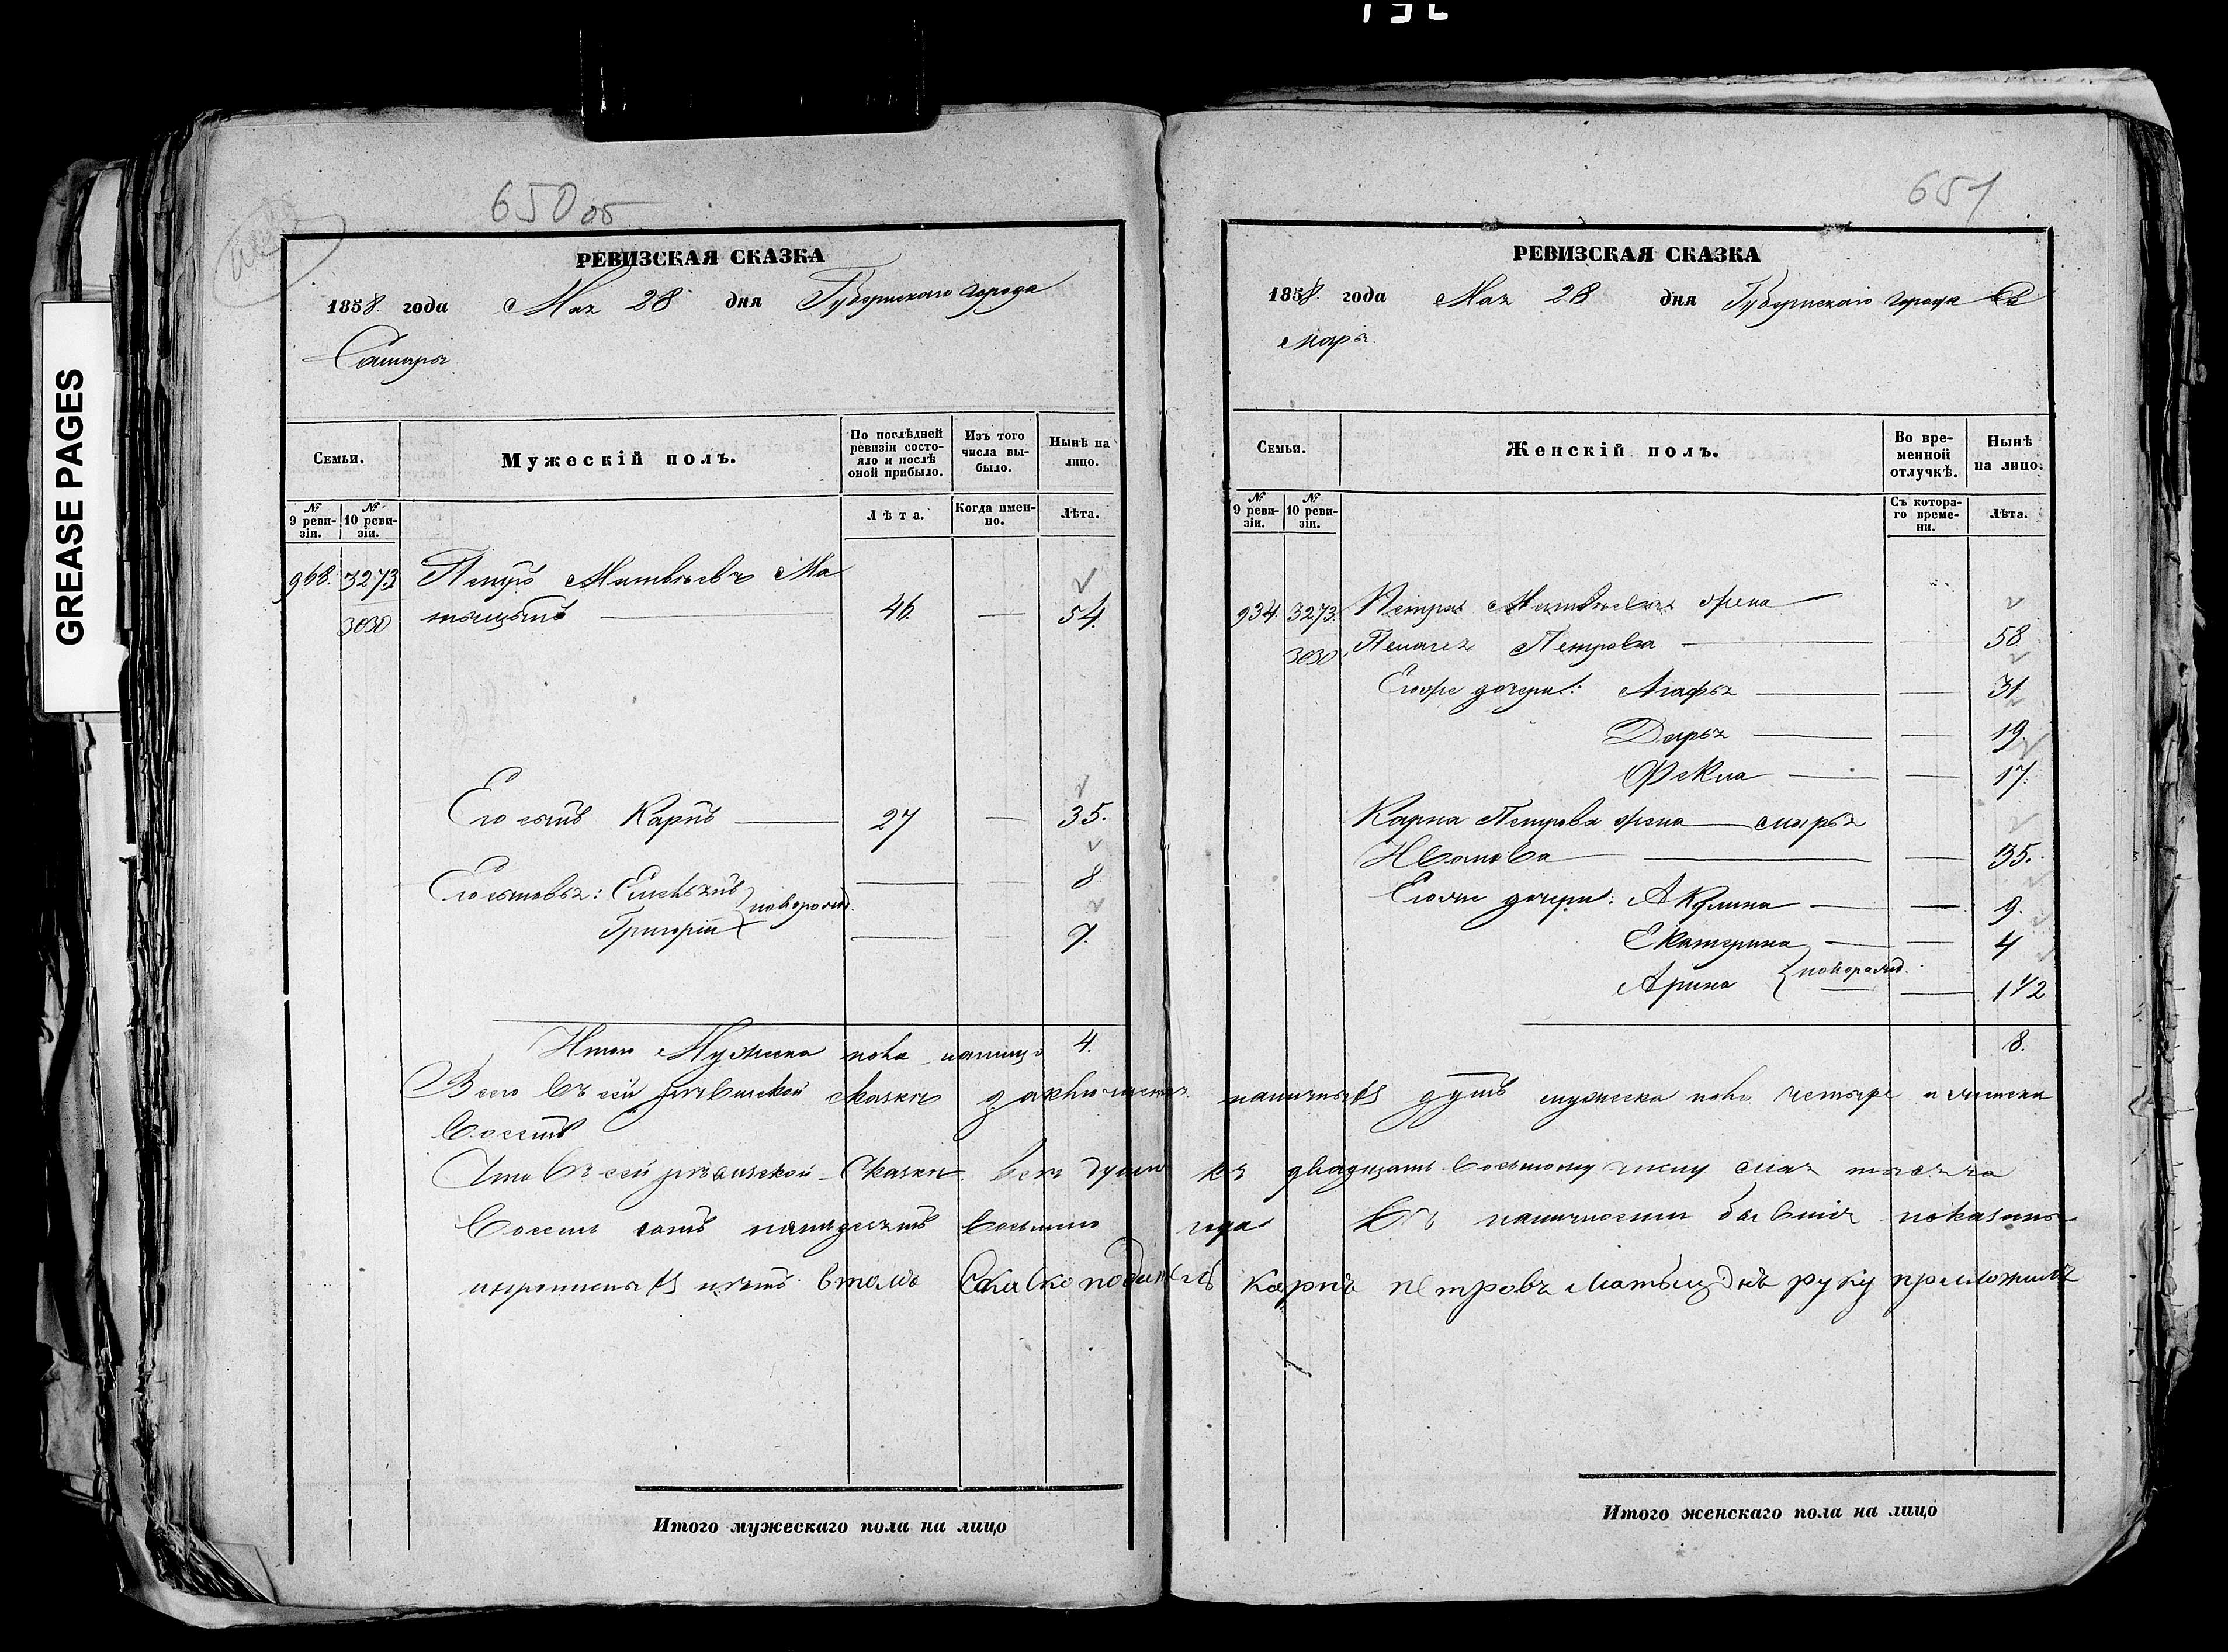 GREASE PAGES
650 об
РЕВИЗСКАЯ СКАЗКА
1858 года Мая 28 дня Губернскаго города
Самары
Семьи.
Мужескій полъ.
По послѣдней ревизіи состояло и послѣ оной прибыло.
Изъ того числа выбыло.
Нынѣ на лицо.
№ 9 ревизіи.
№ 10 ревизіи.
Лѣта.
Когда именно.
Лѣта.
968. 3273 Петръ Матвѣевъ Ма
3030 тыцынъ — 46. — 54.
Его сынъ Карпъ — 27 — 35.
Его сыновья: Емельянъ — — 8
новорожд.
Григорій — 7.
Итого Мужеска пола налицо 4.
651
РЕВИЗСКАЯ СКАЗКА
1858 года Мая 28 дня Губернскаго города Са
мары.
Семьи.
Женскій полъ.
Во временной отлучкѣ.
Нынѣ на лицо.
№ 9 ревизіи.
№ 10 ревизіи.
Съ котораго времени.
Лѣта.
934. 3273. Петра Матвѣева жена —
3030. Пелагея Петрова — — 58
Егоже дочери: Агафья — — 31
Дарья — — 19
Фекла — — 17.
Карпа Петрова жена — Марья
Иванова — — 35.
Егоже дочери: Акулина — — 9.
Екатерина — — 4
новорожд.
Арина — — 1 1/2
8.
Всего въ сей ревизской сказкѣ заключается наличныхъ душъ мужеска пола четыре и женска
восемь
Что въ сей ревизской Сказкѣ всѣ души къ двадцать восьмому числу мая тысяча
восемь сотъ пятьдесятъ восьмаго года въ наличности бывшія показаны
и прописныхъ нѣтъ втомъ Скаско податель карпъ петровъ матыцднъ руку приложилъ
Итого мужескаго пола на лицо
Итого женскаго пола на лицо